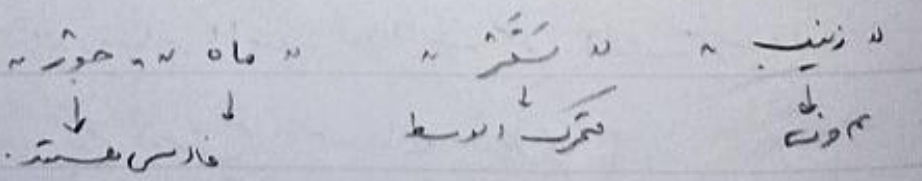 « زینب » « سَقَر » « ماه » « جور »
مونث متحرک الاوسط فارسی هستند.